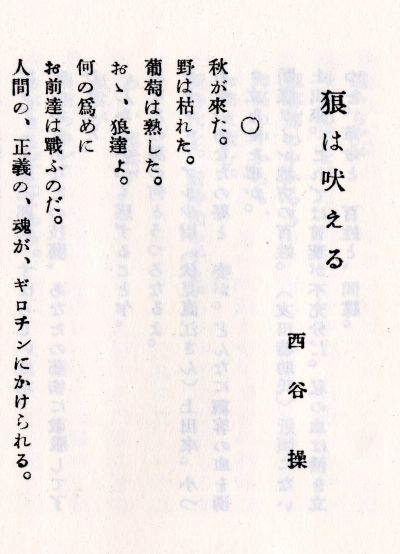 狼は吠える
西谷操
○
秋が來た。
野は枯れた。
葡萄は熟した。
おゝ、狼達よ。
何の爲めに
お前達は戰ふのだ。
人間の、正義の、魂が、ギロチンにかけられる。